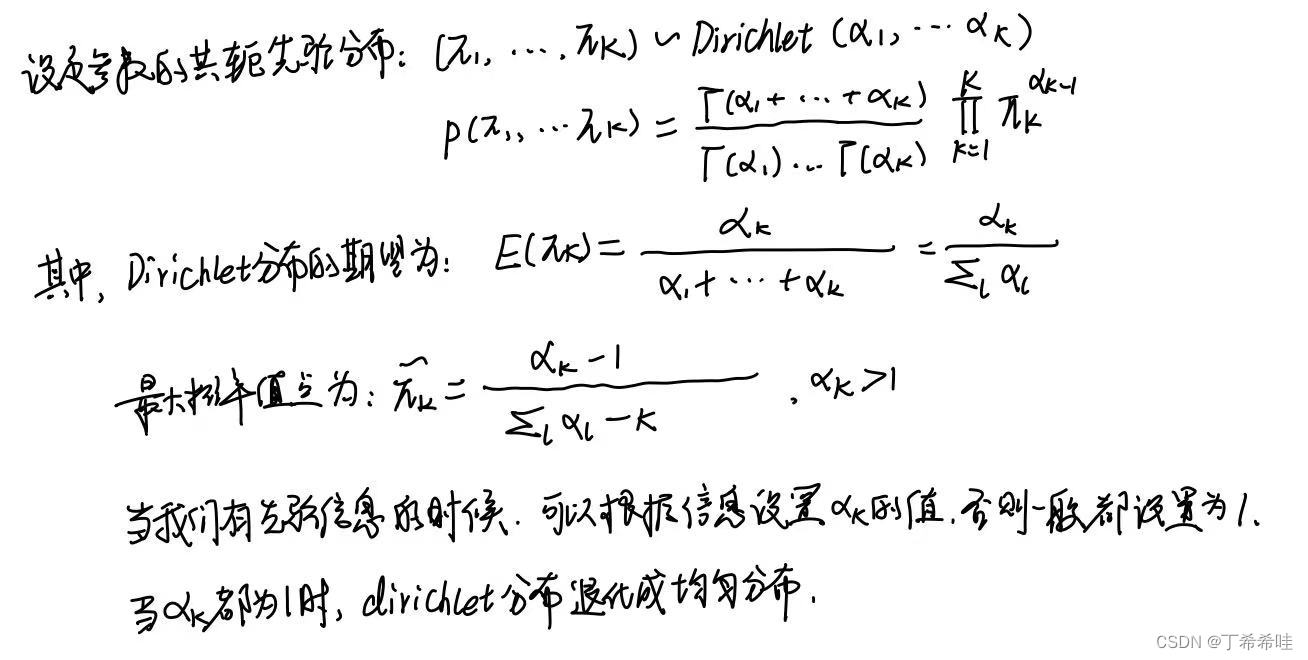 设定参数的共轭先验分布: (π₁, ⋯, πₖ) ∽ Dirichlet (α₁, ⋯ αₖ)
p(π₁, ⋯ πₖ) = \frac{Γ(α₁ + ⋯ + αₖ)}{Γ(α₁) ⋯ Γ(αₖ)} \prod_{k=1}^{K} πₖ^{αₖ-1}
其中, Dirichlet分布的期望为: E(πₖ) = \frac{αₖ}{α₁ + ⋯ + αₖ} = \frac{αₖ}{∑_l α_l}
最大概率值点为: \tilde{π}ₖ = \frac{αₖ - 1}{∑_l α_l - K} , αₖ > 1
当我们有先验信息的时候, 可以根据信息设置αₖ的值, 否则一般都设置为1.
当αₖ都为1时, dirichlet分布退化成均匀分布.
CSDN @丁希希哇